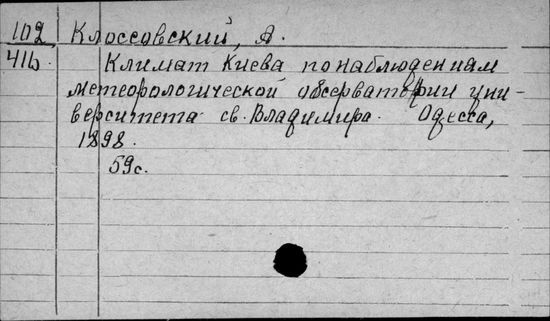 102 Клоссовский, А.
416. Климат Киева по наблюдениам
метеорологической обсерватории уни-
верситета св. Владимира. Одесса,
1898.
59с.